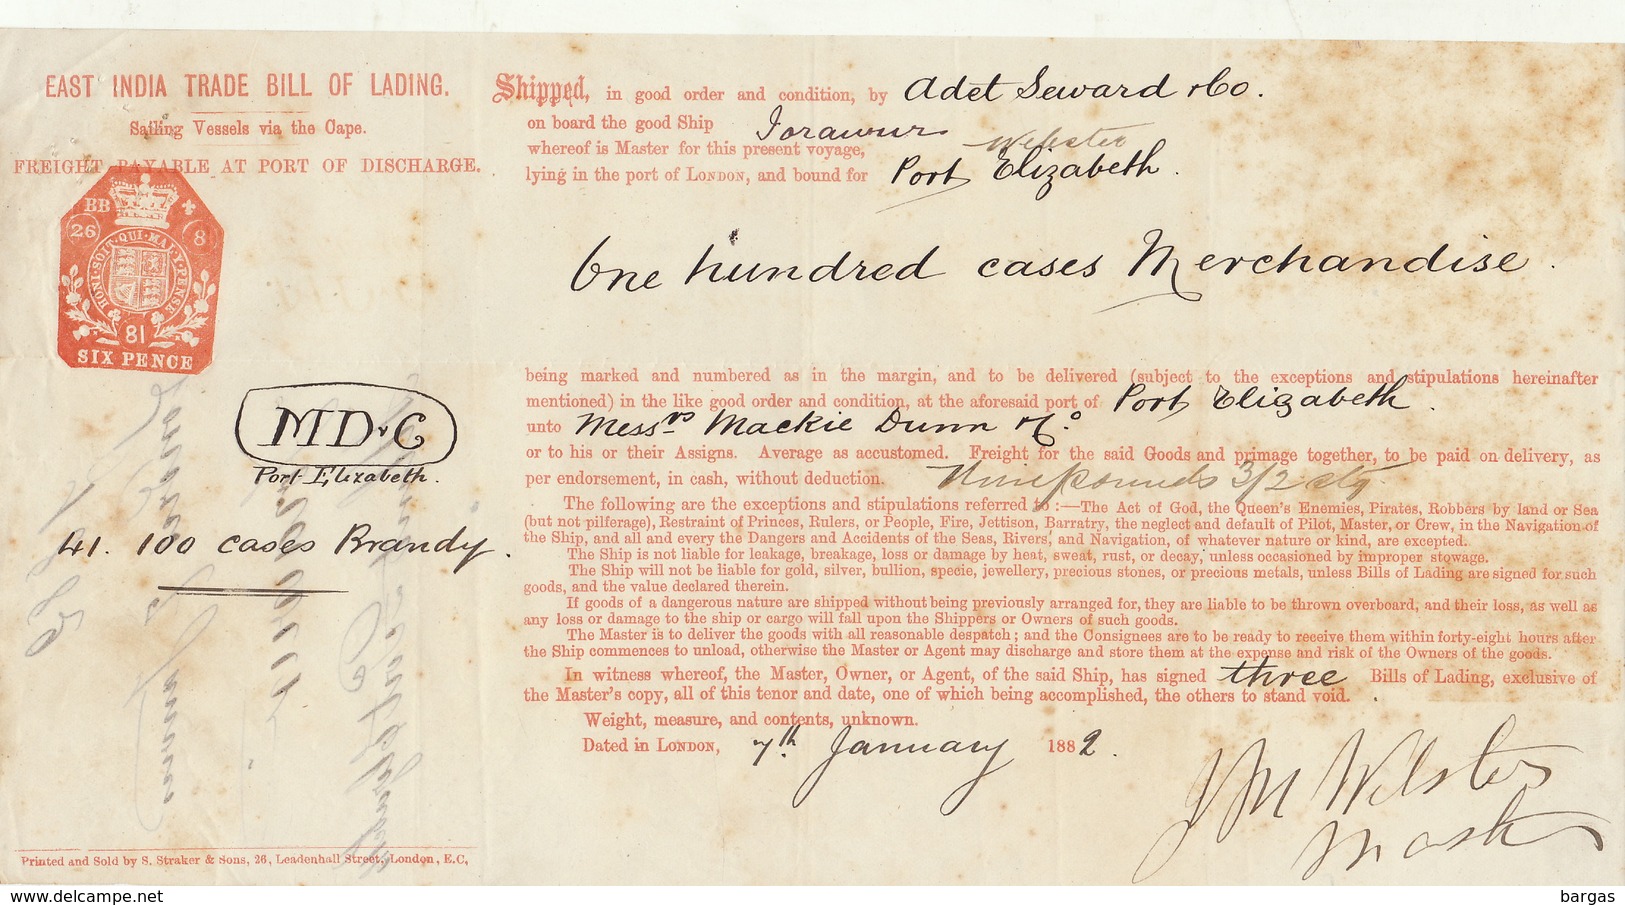 EAST INDIA TRADE BILL OF LADING.
Sailing Vessels via the Cape.
FREIGHT PAYABLE AT PORT OF DISCHARGE.
BB
26 8
HONI·SOIT·QUI·MAL·Y·PENSE
81
SIX PENCE
MD & C
Port Elizabeth.
41. 100 cases Brandy.
Printed and Sold by S. Straker & Sons, 26, Leadenhall Street, London, E.C,
Shipped, in good order and condition, by Adet Seward & Co.
on board the good Ship Jorawur
whereof is Master for this present voyage, Webster
lying in the port of LONDON, and bound for Port Elizabeth.
One hundred cases Merchandise.
being marked and numbered as in the margin, and to be delivered (subject to the exceptions and stipulations hereinafter
mentioned) in the like good order and condition, at the aforesaid port of Port Elizabeth.
unto Messrs Mackie Dunn & Co
or to his or their Assigns. Average as accustomed. Freight for the said Goods and primage together, to be paid on delivery, as
per endorsement, in cash, without deduction. Nine pounds 3/2 stg.
The following are the exceptions and stipulations referred to :—The Act of God, the Queen's Enemies, Pirates, Robbers by land or Sea
(but not pilferage), Restraint of Princes, Rulers, or People, Fire, Jettison, Barratry, the neglect and default of Pilot, Master, or Crew, in the Navigation of
the Ship, and all and every the Dangers and Accidents of the Seas, Rivers, and Navigation, of whatever nature or kind, are excepted.
The Ship is not liable for leakage, breakage, loss or damage by heat, sweat, rust, or decay, unless occasioned by improper stowage.
The Ship will not be liable for gold, silver, bullion, specie, jewellery, precious stones, or precious metals, unless Bills of Lading are signed for such
goods, and the value declared therein.
If goods of a dangerous nature are shipped without being previously arranged for, they are liable to be thrown overboard, and their loss, as well as
any loss or damage to the ship or cargo will fall upon the Shippers or Owners of such goods.
The Master is to deliver the goods with all reasonable despatch ; and the Consignees are to be ready to receive them within forty-eight hours after
the Ship commences to unload, otherwise the Master or Agent may discharge and store them at the expense and risk of the Owners of the goods.
In witness whereof, the Master, Owner, or Agent, of the said Ship, has signed three Bills of Lading, exclusive of
the Master's copy, all of this tenor and date, one of which being accomplished, the others to stand void.
Weight, measure, and contents, unknown.
Dated in LONDON, 7th January 1882.
J M Webster
Master
bargas